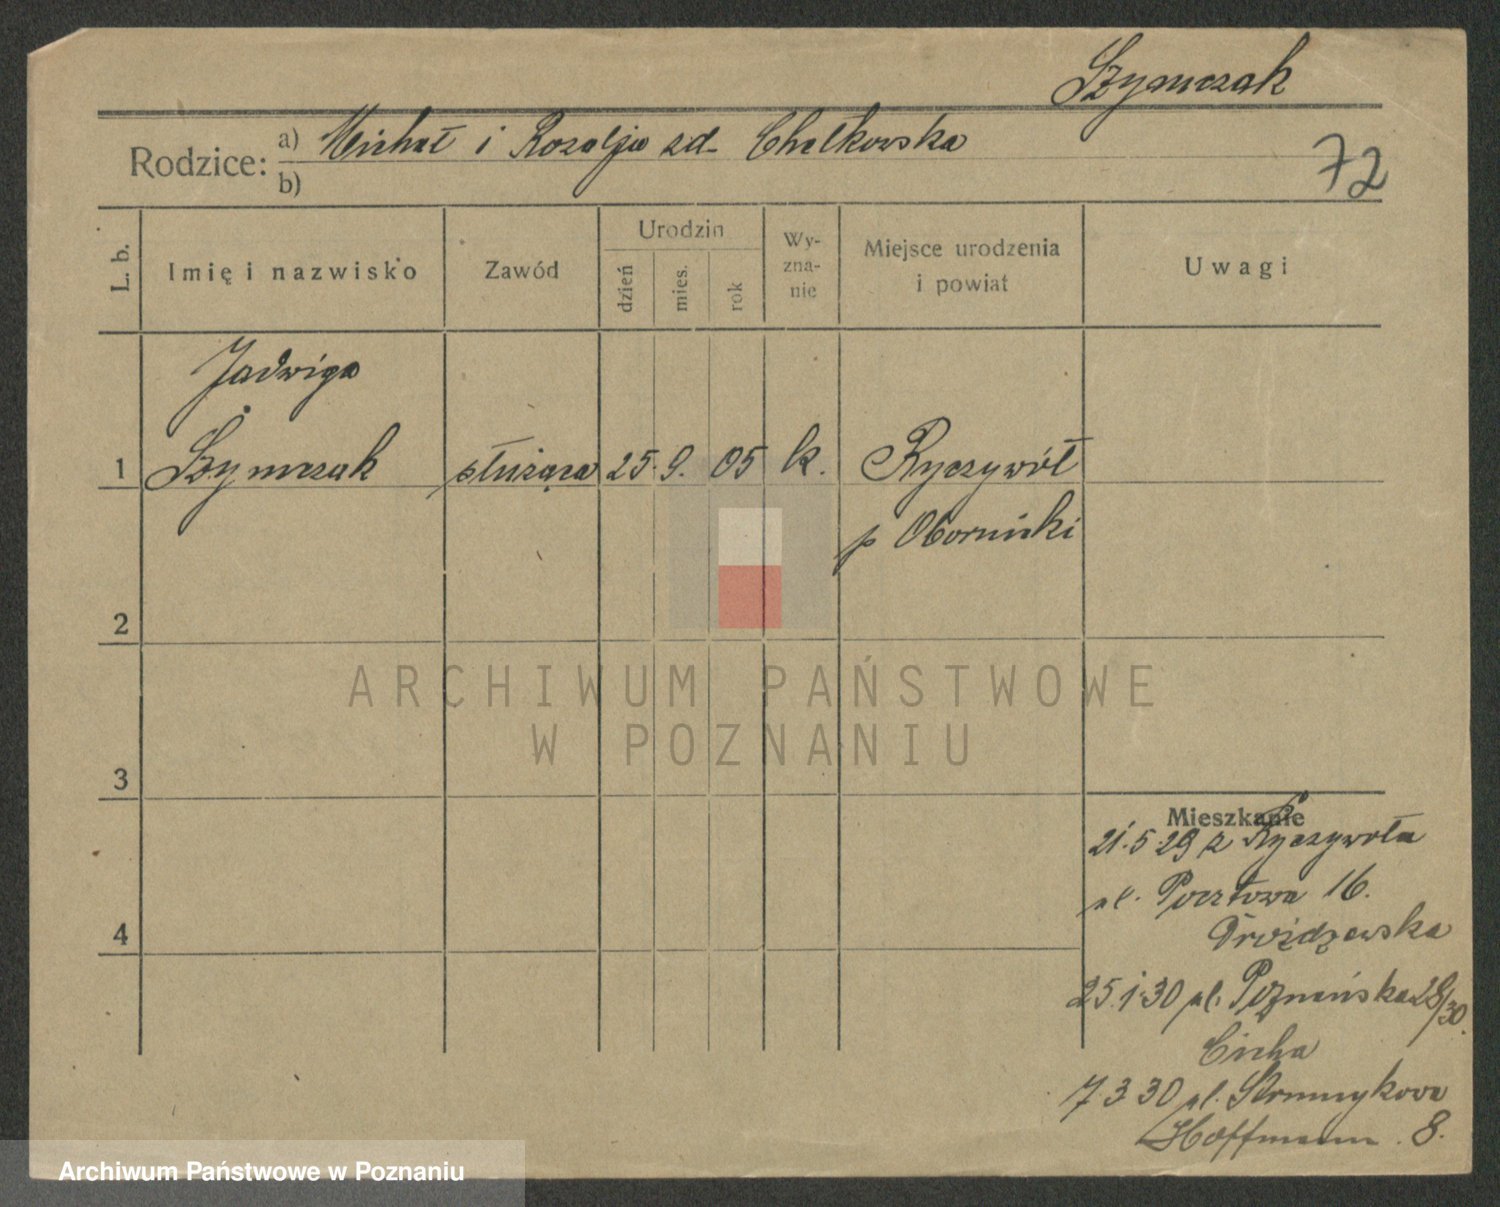 Szymczak
Rodzice: a) Michał i Rozalja zd. Chełkowska
b)
72
L. b.
Imię i nazwisko
Zawód
Urodzin
dzień
mies.
rok
Wy-
zna-
nie
Miejsce urodzenia
i powiat
Uwagi
Jadwiga
1 Szymczak służąca 25. 9. 05 k. Ryczywół
p Obornicki
2
3
4
ARCHIWUM PAŃSTWOWE
W POZNANIU
Mieszkanie
21.5.29 z Ryczywoła
ul. Pocztowa 16.
Drożdżewska
25.1.30 ul. Poznańska 28/30.
Cicha
7 3 30 ul. Strumykowa
Hoffmann. 8.
Archiwum Państwowe w Poznaniu